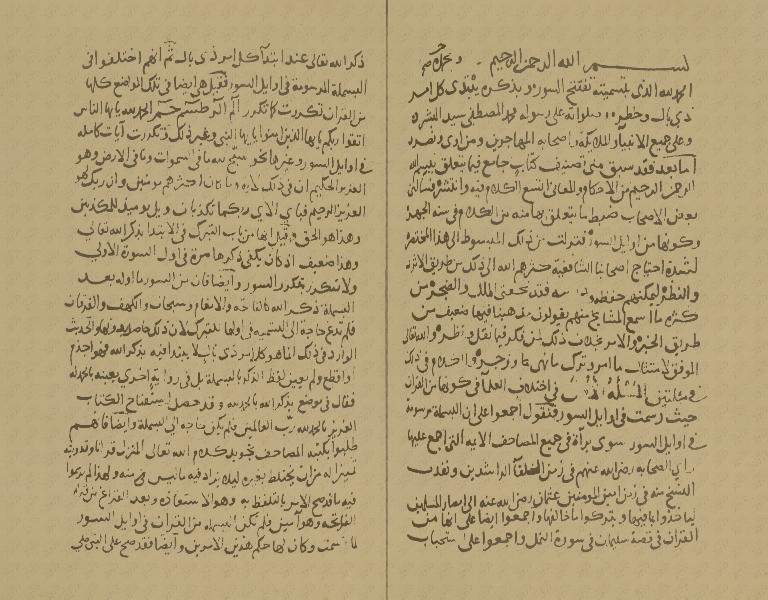 بسم الله الرحمن الرحيم
الحمد لله الذي بتسميته تفتتح السور وبذكره يبتدى كل امر
ذي بال وخطر وصلواته على رسوله محمد المصطفى سيد البشر
وعلى جميع الانبيا والملائكة واصحابه المهاجرين ومن اوى ونصر
اما بعد فقد سبق مني تصنيف كتاب جامع فيما يتعلق ببسم الله
الرحمن الرحيم من الاحكام والمعاني اتسع الكلام فيه وانتشر فسالني
بعض الاصحاب ضبط ما يتعلق بها منه من الكلام في مسئلة الجهر
وكونها من اوايل السور فنزلت من ذلك المبسوط الى هذا المختصر
لشدة احتياج اصحابنا الشافعية حرسهم الله الى ذلك من طريق الاثر
والنظر ليمكنهم حفظه
كثرة ما اسمع المشايخ منهم يقولون مذهبنا فيها ضعيف من
طريق الخبر والامر بخلاف ذلك لمن فكر فيما نقل ونظر والله تعالى
الموفق لامتثال ما امر وترك ما نهى عنه وزجر
المسئلة الاولى في اختلاف العلما في كونها من القران
حيث رسمت في اوايل السور فنقول اجمعوا على ان البسملة مرسومة
في اوايل السور سوى براة في جميع المصاحف الايمة التي اجمع عليها
راي الصحابة رضي الله عنهم في زمن الخلفا الراشدين ونفذت
النسخ منه في زمن امير المومنين عثمان رضي الله عنه الى امصار المسلمين
لياخذوا بما فيها ويتركوا ما خالفها واجمعوا ايضا على انها من
القران في قصة سليمان في سورة النمل واجمعوا على استحباب
ذكر الله تعالى عند ابتدا كل امر ذي بال ثم انهم اختلفوا في
البسملة المرسومة في اوايل السور فقيل هي ايضا في تلك المواضع كلها
من القران تكررت كما تكرر الم الر طسم حم الحمد لله يا ايها الناس
اتقوا ربكم يا ايها الذين امنوا يا ايها النبي وغير ذلك فتكررت آيات كاملة
في اوايل السور وغيرها نحو سبح لله ما في السموات وما في الارض وهو
العزيز الحكيم ان في ذلك لاية وما كان اكثرهم مومنين وان ربك لهو
العزيز الرحيم فباي الاي ربكما تكذبان ويل يوميذ للمكذبين
وهذا هو الحق وقيل انها من باب التبرك في الابتدا بذكر الله تعالى
وهذا ضعيف اذ كان يكفي ذكرها مرة في اول السورة الاولى
ولا تتكرر بتكرر السور وايضا فان من السور ما اوله بعد
البسملة ذكر الله كالفاتحة والانعام وسبحان والكهف والفرقان
فلم تدع حاجة الى التسمية في اولها للتبرك لان ذلك حاصل بدونها والحديث
الوارد في ذلك انما هو كل امر ذي بال لا يبتدا فيه بذكر الله فهو اجذم
او اقطع ولم يعين لفظ الذكر بالبسملة بل في رواية اخرى بعينه بالحمد لله
فقال في موضع بذكر الله بالحمد لله وقد حصل استفتاح الكتاب
العزيز بالحمد لله رب العالمين فلم يكن حاجة الى البسملة وايضا فانهم
طلبوا بكتبة المصاحف تجريد كلام الله تعالى المنزل قرانا وتدوينه
تمييزا له من ان يختلط بغيره ليلا يزاد فيه ما ليس منه ولهذا لم يرسموا
فيه ما قد صح الامر بالتلفظ به وهو الاستعاذة وبعد الفراغ من قراة
الفاتحة وهو آمين فلو لم تكن البسملة من القران في اوايل السور
لما رسمت وكان لها حكم هذين الامرين وايضا فقد صح على النبي صلى